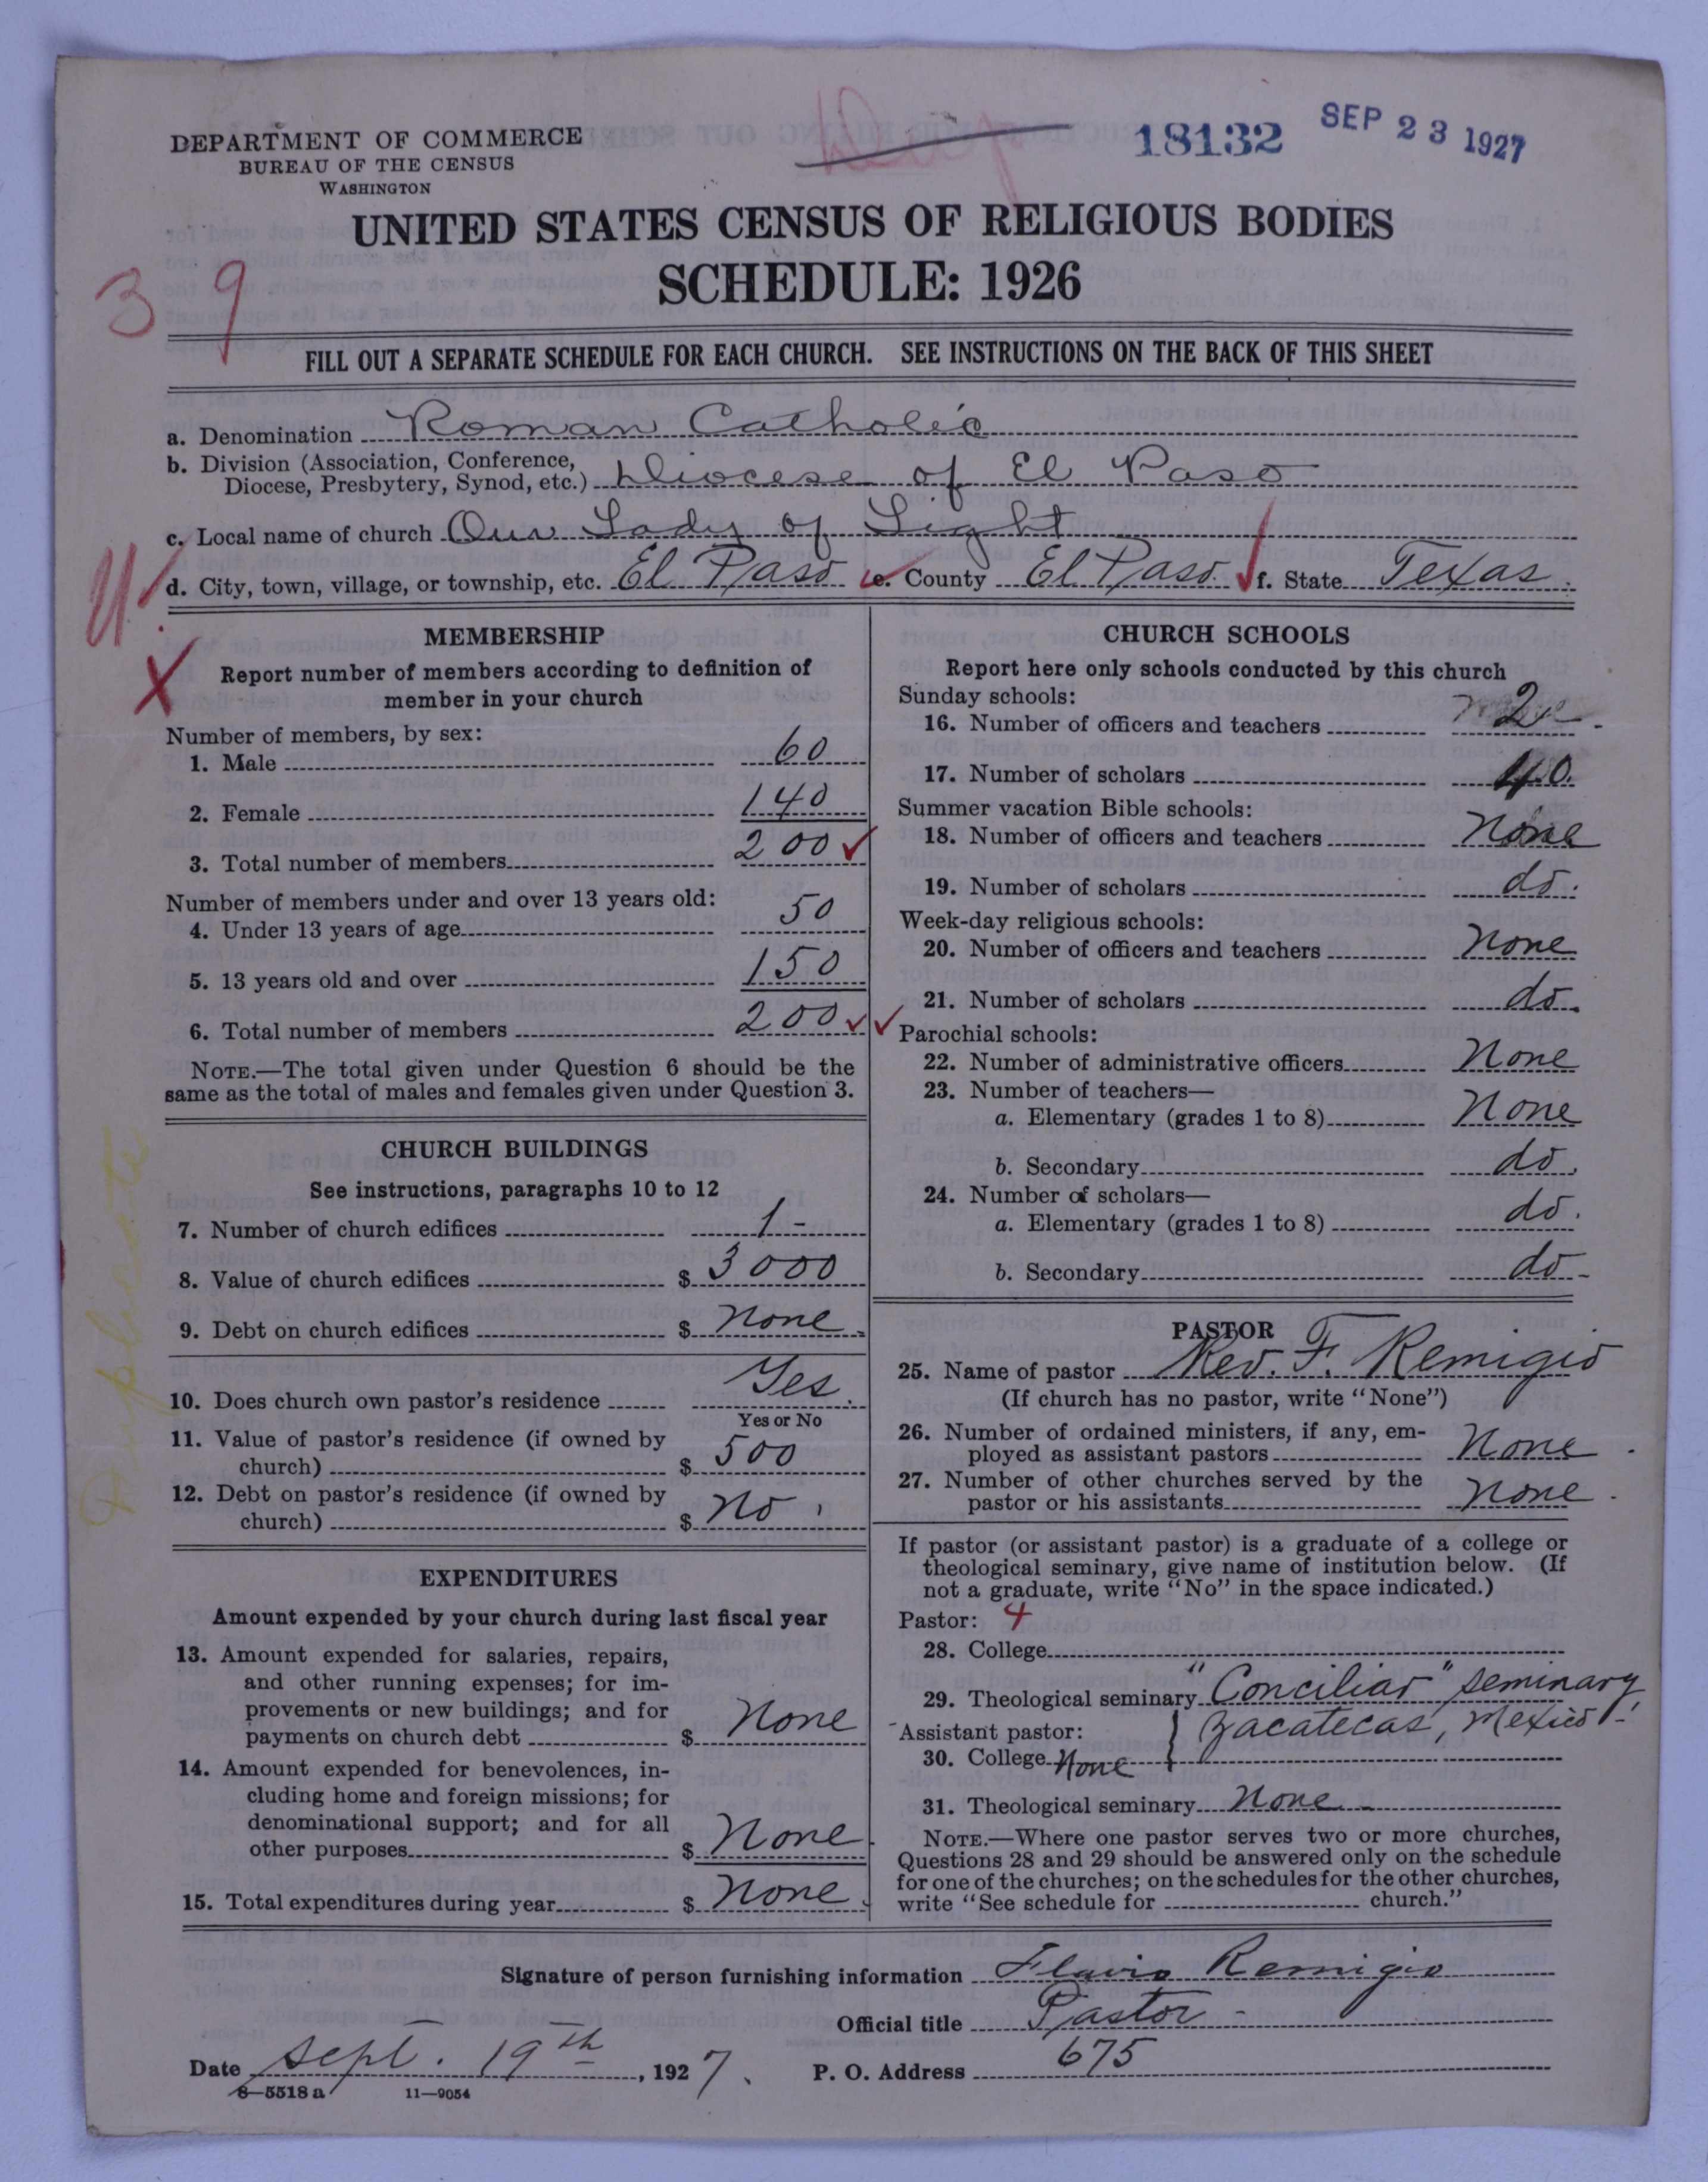 DEPARTMENT OF COMMERCE
BUREAU OF THE CENSUS
WASHINGTON
18132
SEP 23 1927
UNITED STATES CENSUS OF RELIGIOUS BODIES
SCHEDULE: 1926
3 9
FILL OUT A SEPARATE SCHEDULE FOR EACH CHURCH. SEE INSTRUCTIONS ON THE BACK OF THIS SHEET
a. Denomination Roman Catholic
b. Division (Association, Conference,
Diocese, Presbytery, Synod, etc.) Diocese of El Paso
c. Local name of church Our Lady of Light
d. City, town, village, or township, etc. El Paso e. County El Paso. f. State Texas.
U
X
MEMBERSHIP
Report number of members according to definition of
member in your church
Number of members, by sex:
1. Male 60
2. Female 140
3. Total number of members 200
Number of members under and over 13 years old:
4. Under 13 years of age 50
5. 13 years old and over 150
6. Total number of members 200
NOTE.—The total given under Question 6 should be the
same as the total of males and females given under Question 3.
Duplicate
CHURCH BUILDINGS
See instructions, paragraphs 10 to 12
7. Number of church edifices 1-
8. Value of church edifices $ 3000
9. Debt on church edifices $ none.
10. Does church own pastor's residence Yes.
Yes or No
11. Value of pastor's residence (if owned by
church) $ 500
12. Debt on pastor's residence (if owned by
church) $ No.
EXPENDITURES
Amount expended by your church during last fiscal year
13. Amount expended for salaries, repairs,
and other running expenses; for im-
provements or new buildings; and for
payments on church debt $ None
14. Amount expended for benevolences, in-
cluding home and foreign missions; for
denominational support; and for all
other purposes $ None
15. Total expenditures during year $ None.
CHURCH SCHOOLS
Report here only schools conducted by this church
Sunday schools:
16. Number of officers and teachers 2
17. Number of scholars 40.
Summer vacation Bible schools:
18. Number of officers and teachers None
19. Number of scholars do.
Week-day religious schools:
20. Number of officers and teachers None
21. Number of scholars do.
Parochial schools:
22. Number of administrative officers None
23. Number of teachers—
a. Elementary (grades 1 to 8) None
b. Secondary do.
24. Number of scholars—
a. Elementary (grades 1 to 8) do.
b. Secondary do-
PASTOR
25. Name of pastor Rev. F. Remigio
(If church has no pastor, write "None")
26. Number of ordained ministers, if any, em-
ployed as assistant pastors None.
27. Number of other churches served by the
pastor or his assistants None.
If pastor (or assistant pastor) is a graduate of a college or
theological seminary, give name of institution below. (If
not a graduate, write "No" in the space indicated.)
Pastor: 4
28. College
29. Theological seminary "Conciliar" seminary
Assistant pastor: } Zacatecas, Mexico.-
30. College None
31. Theological seminary None.
NOTE.—Where one pastor serves two or more churches,
Questions 28 and 29 should be answered only on the schedule
for one of the churches; on the schedules for the other churches,
write "See schedule for church."
Signature of person furnishing information Flavio Remigio
Official title Pastor -
Date Sept. 19th, 1927. P. O. Address 675
8—5518 a 11—9054